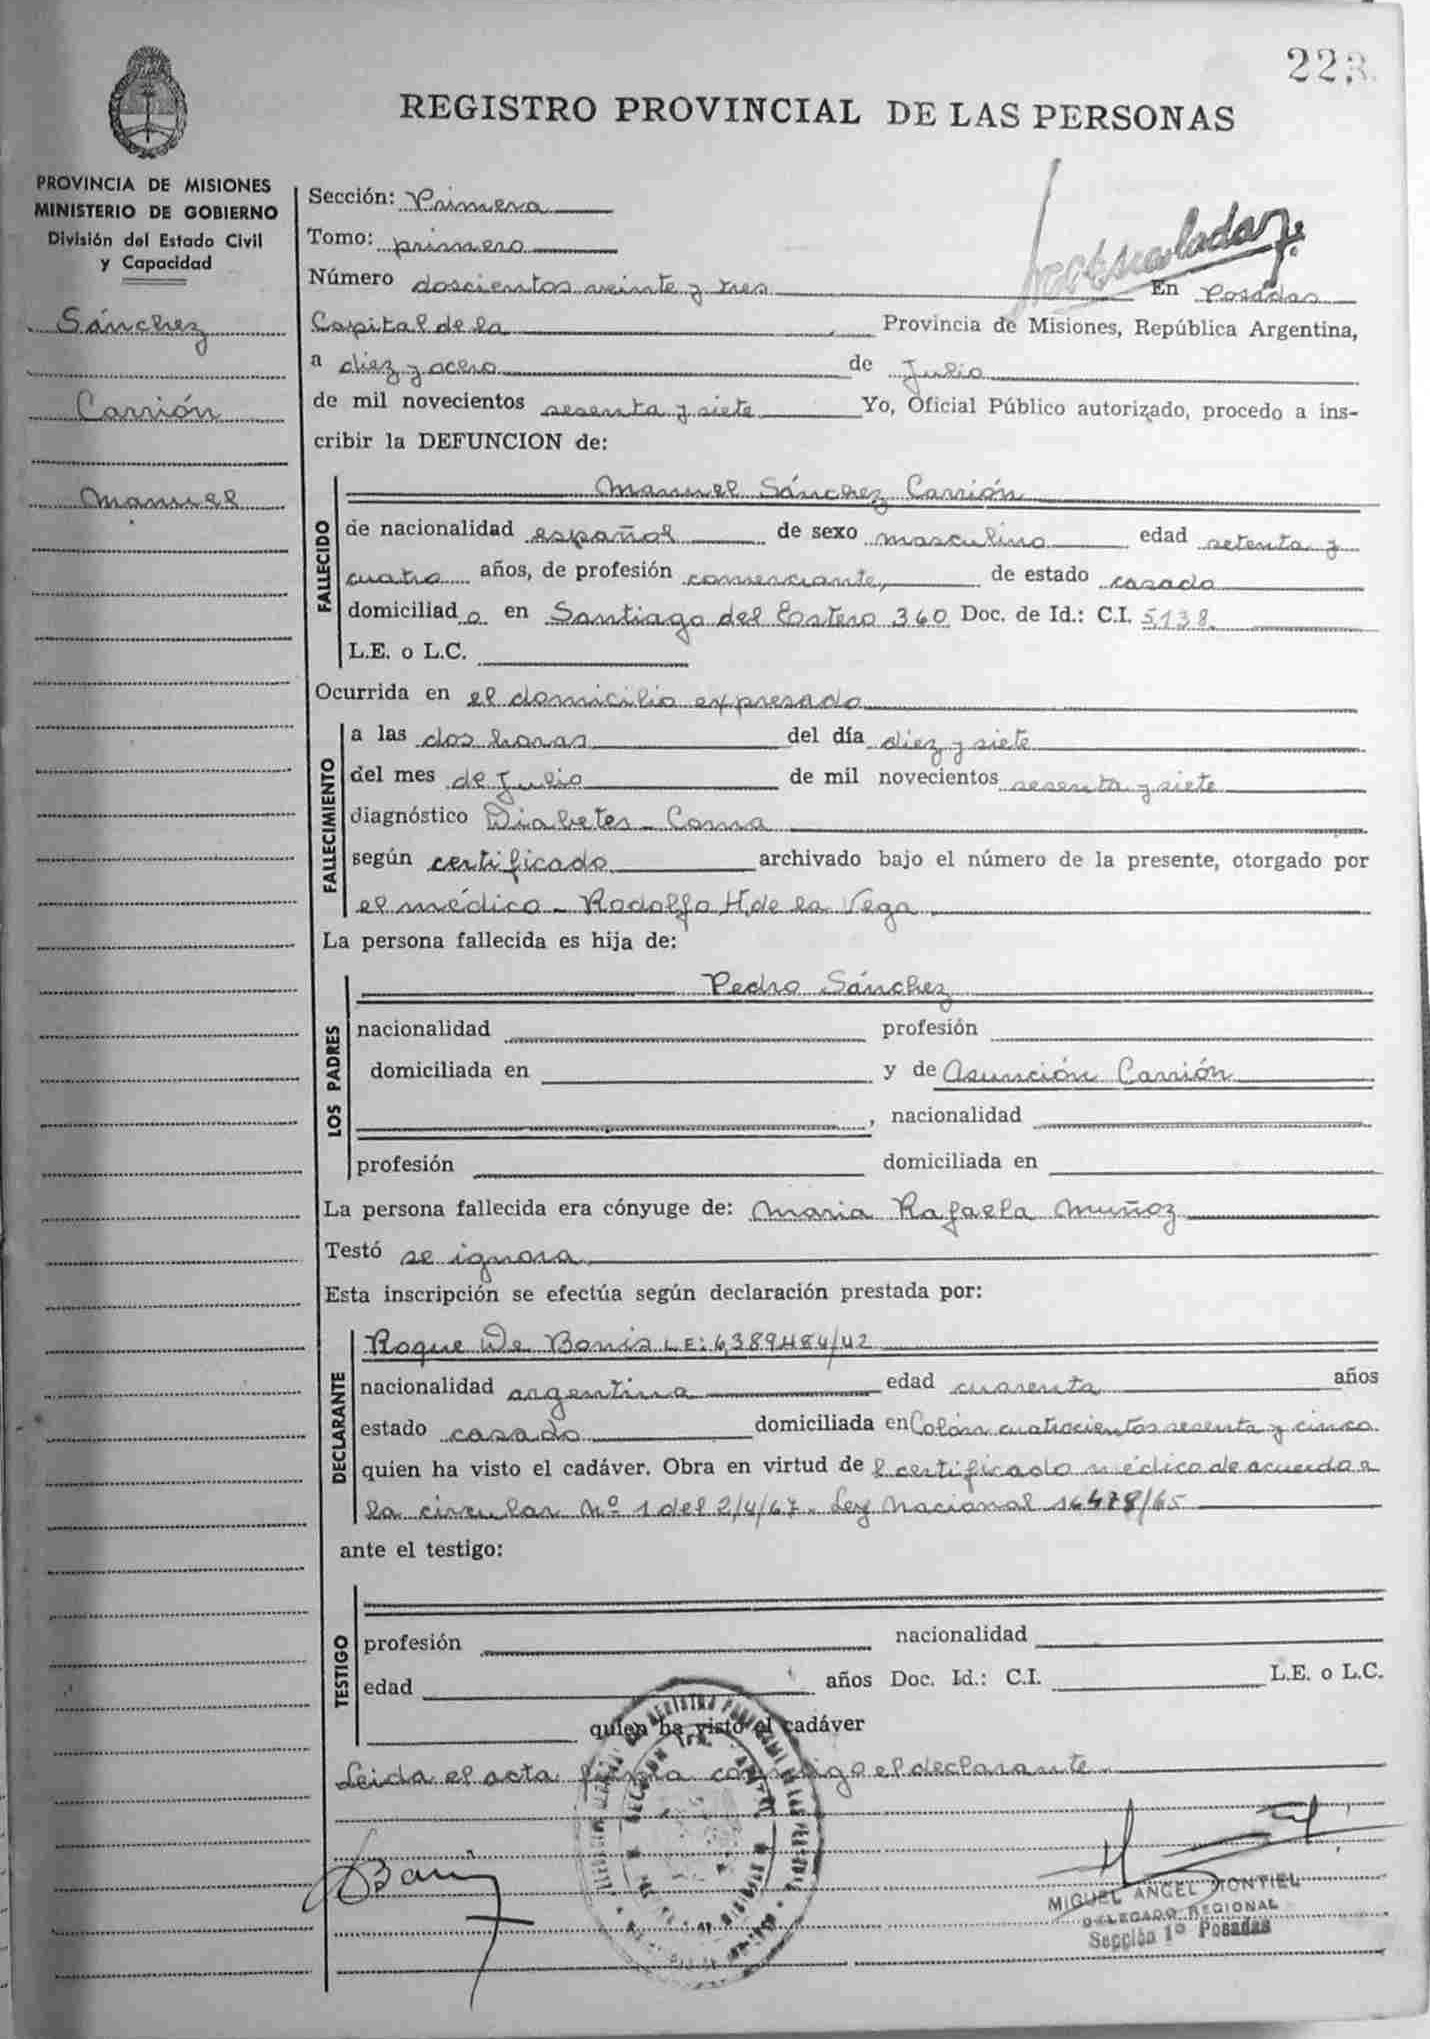 223
REGISTRO PROVINCIAL DE LAS PERSONAS
PROVINCIA DE MISIONES
MINISTERIO DE GOBIERNO
División del Estado Civil
y Capacidad
Sánchez
Carrión
Manuel
Sección: Primera
Tomo: primero
Número doscientos veinte y tres En Posadas
Capital de la, Provincia de Misiones, República Argentina,
a diez y ocho de Julio
de mil novecientos sesenta y siete Yo, Oficial Público autorizado, procedo a ins-
cribir la DEFUNCION de:
FALLECIDO
Manuel Sánchez Carrión
de nacionalidad español de sexo masculino edad setenta y
cuatro años, de profesión comerciante, de estado casado
domiciliad o en Santiago del Estero 360 Doc. de Id.: C.I. 5138
L.E. o L.C.
Ocurrida en el domicilio expresado
FALLECIMIENTO
a las dos horas del día diez y siete
del mes de Julio de mil novecientos sesenta y siete
diagnóstico Diabetes - Coma
según certificado archivado bajo el número de la presente, otorgado por
el médico - Rodolfo H. de la Vega
La persona fallecida es hija de:
LOS PADRES
Pedro Sánchez
nacionalidad profesión
domiciliada en y de Asunción Carrión
, nacionalidad
profesión domiciliada en
La persona fallecida era cónyuge de: Maria Rafaela Muñoz
Testó se ignora
Esta inscripción se efectúa según declaración prestada por:
DECLARANTE
Roque De Bonis LE:
nacionalidad argentina edad cuarenta años
estado casado domiciliada en Colón cuatrocientos sesenta y cinco
quien ha visto el cadáver. Obra en virtud de l certificado médico de acuerdo a
la circular Nº 1 del 2/4/67. Ley Nacional 16478/65
ante el testigo:
TESTIGO
profesión nacionalidad
edad años Doc. Id.: C.I. L.E. o L.C.
quien ha visto el cadáver
Leida el acta firma conmigo el declarante
MIGUEL ANGEL MONTIEL
DELEGADO REGIONAL
Sección 1º Posadas